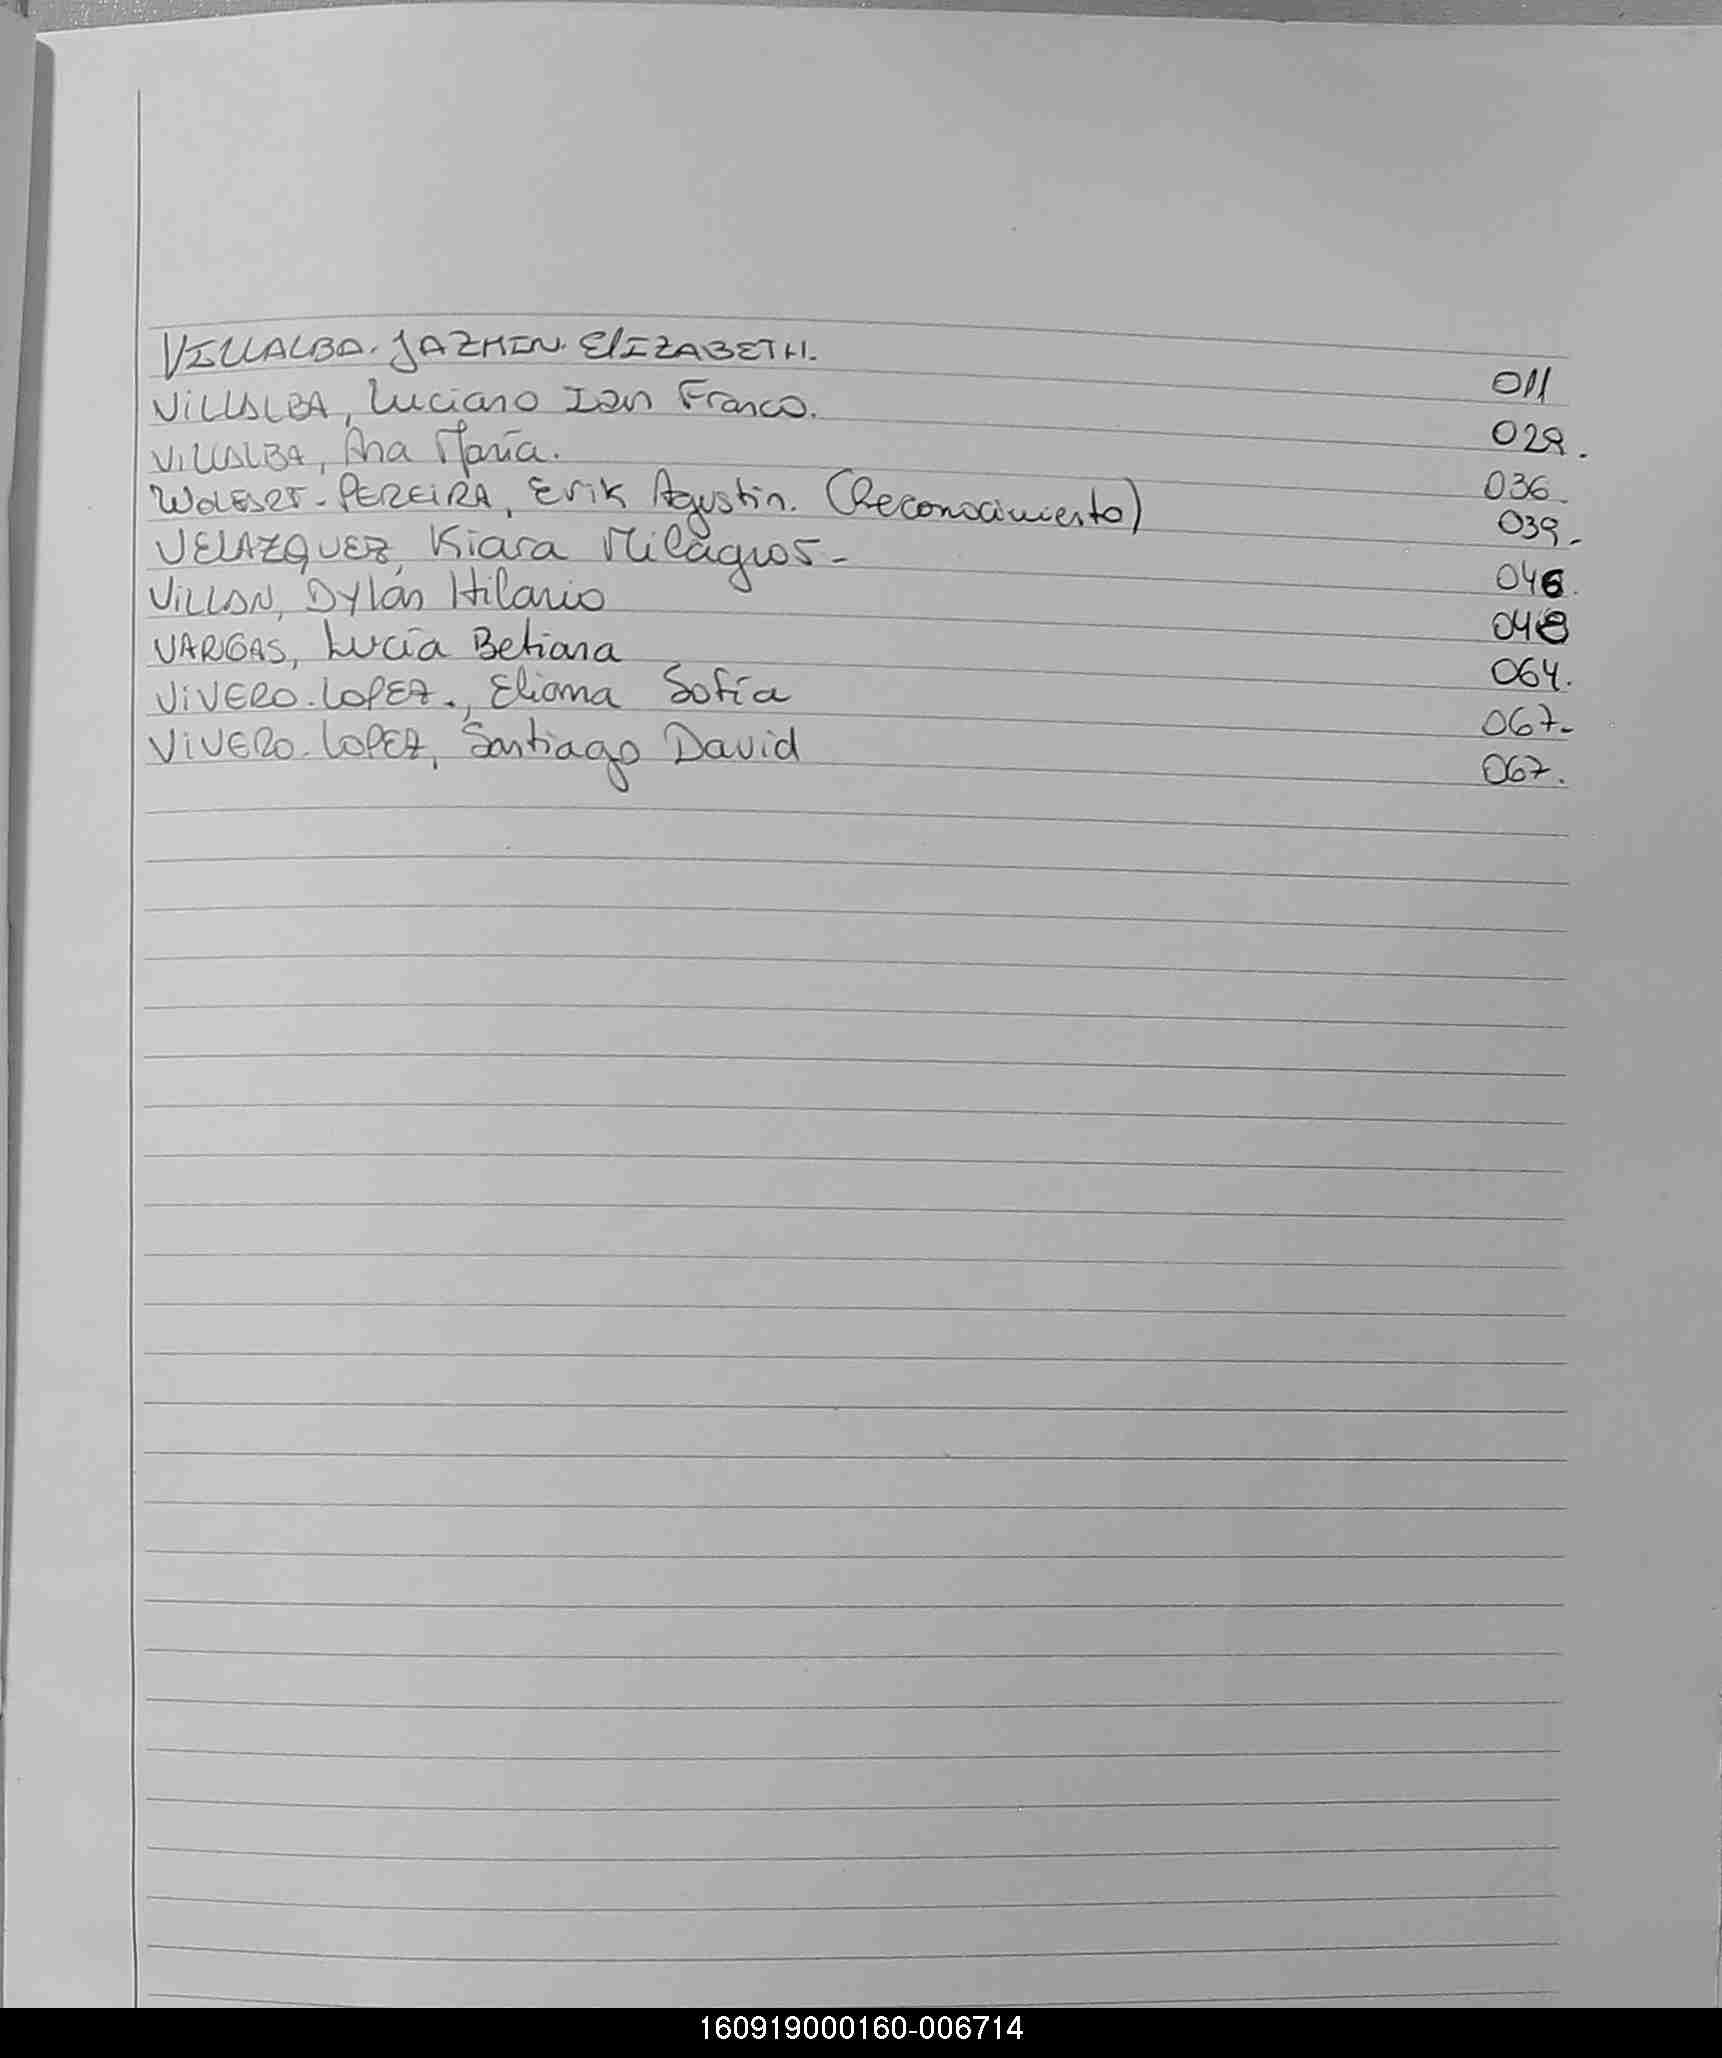 VILLALBA. JAZMIN. ElIZABETH. 011
ViLLALBA, Luciano Ian Franco. 029.
ViLLALBA, Ana María. 036.
PEREIRA, Erik Agustin. (Reconocimiento) 039.
VELAZQUEZ, Kiara Milagros- 046.
ViLLAN, Dylán Hilario 048
VARGAS, Lucía Betiana 064.
ViVERO.LOPEZ., Eliana Sofía 067-
ViVERO.LOPEZ, Santiago David 067.
160919000160-006714